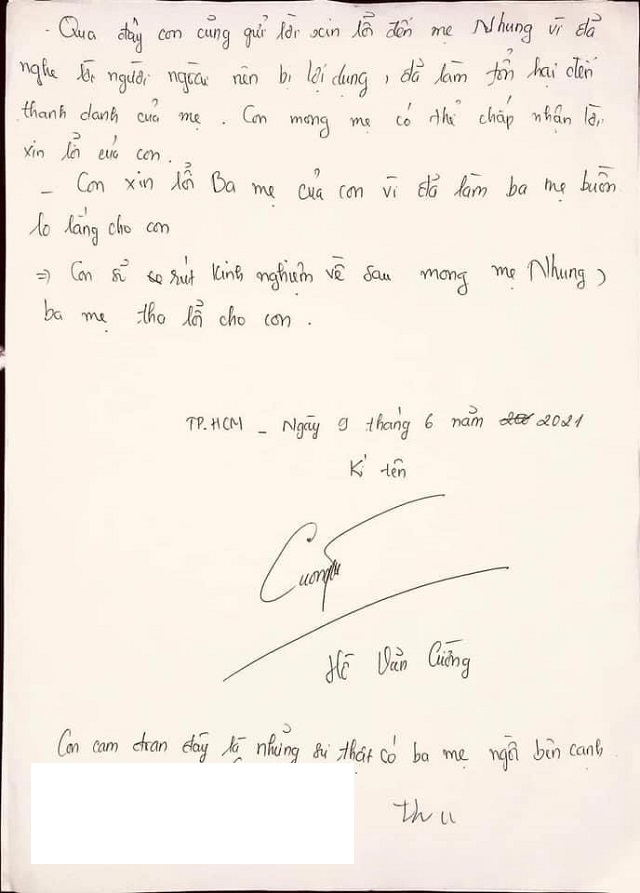 - Qua đây con củng gửi lời xin lổi đến mẹ Nhung vì đả
nghe lời người ngoài nên bị lợi dụng, đả làm tổn hại đến
thanh danh của mẹ. Con mong mẹ có thể chấp nhận lời
xin lổi của con.
- Con xin lổi Ba mẹ của con vì đả làm ba mẹ buồn
lo lắng cho con
=> Con sẻ rút kinh nghiệm về sau mong mẹ Nhung,
ba mẹ tha lổi cho con.
TP.HCM - Ngày 9 tháng 6 năm 2021
Kí tên
Cuong
Hồ Văn Cường
Con cam đoan đây là nhửng sự thật có ba mẹ ngồi bên cạnh
thu